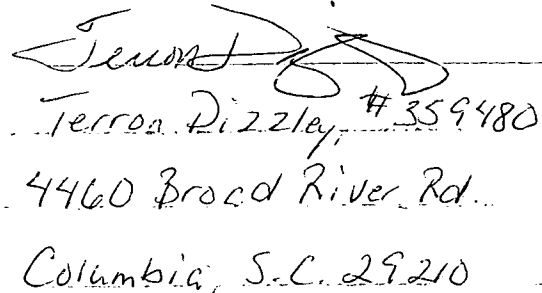 Terron D
Terron Dizzley, #359480
4460 Broad River Rd.
Columbia, S.C. 29210